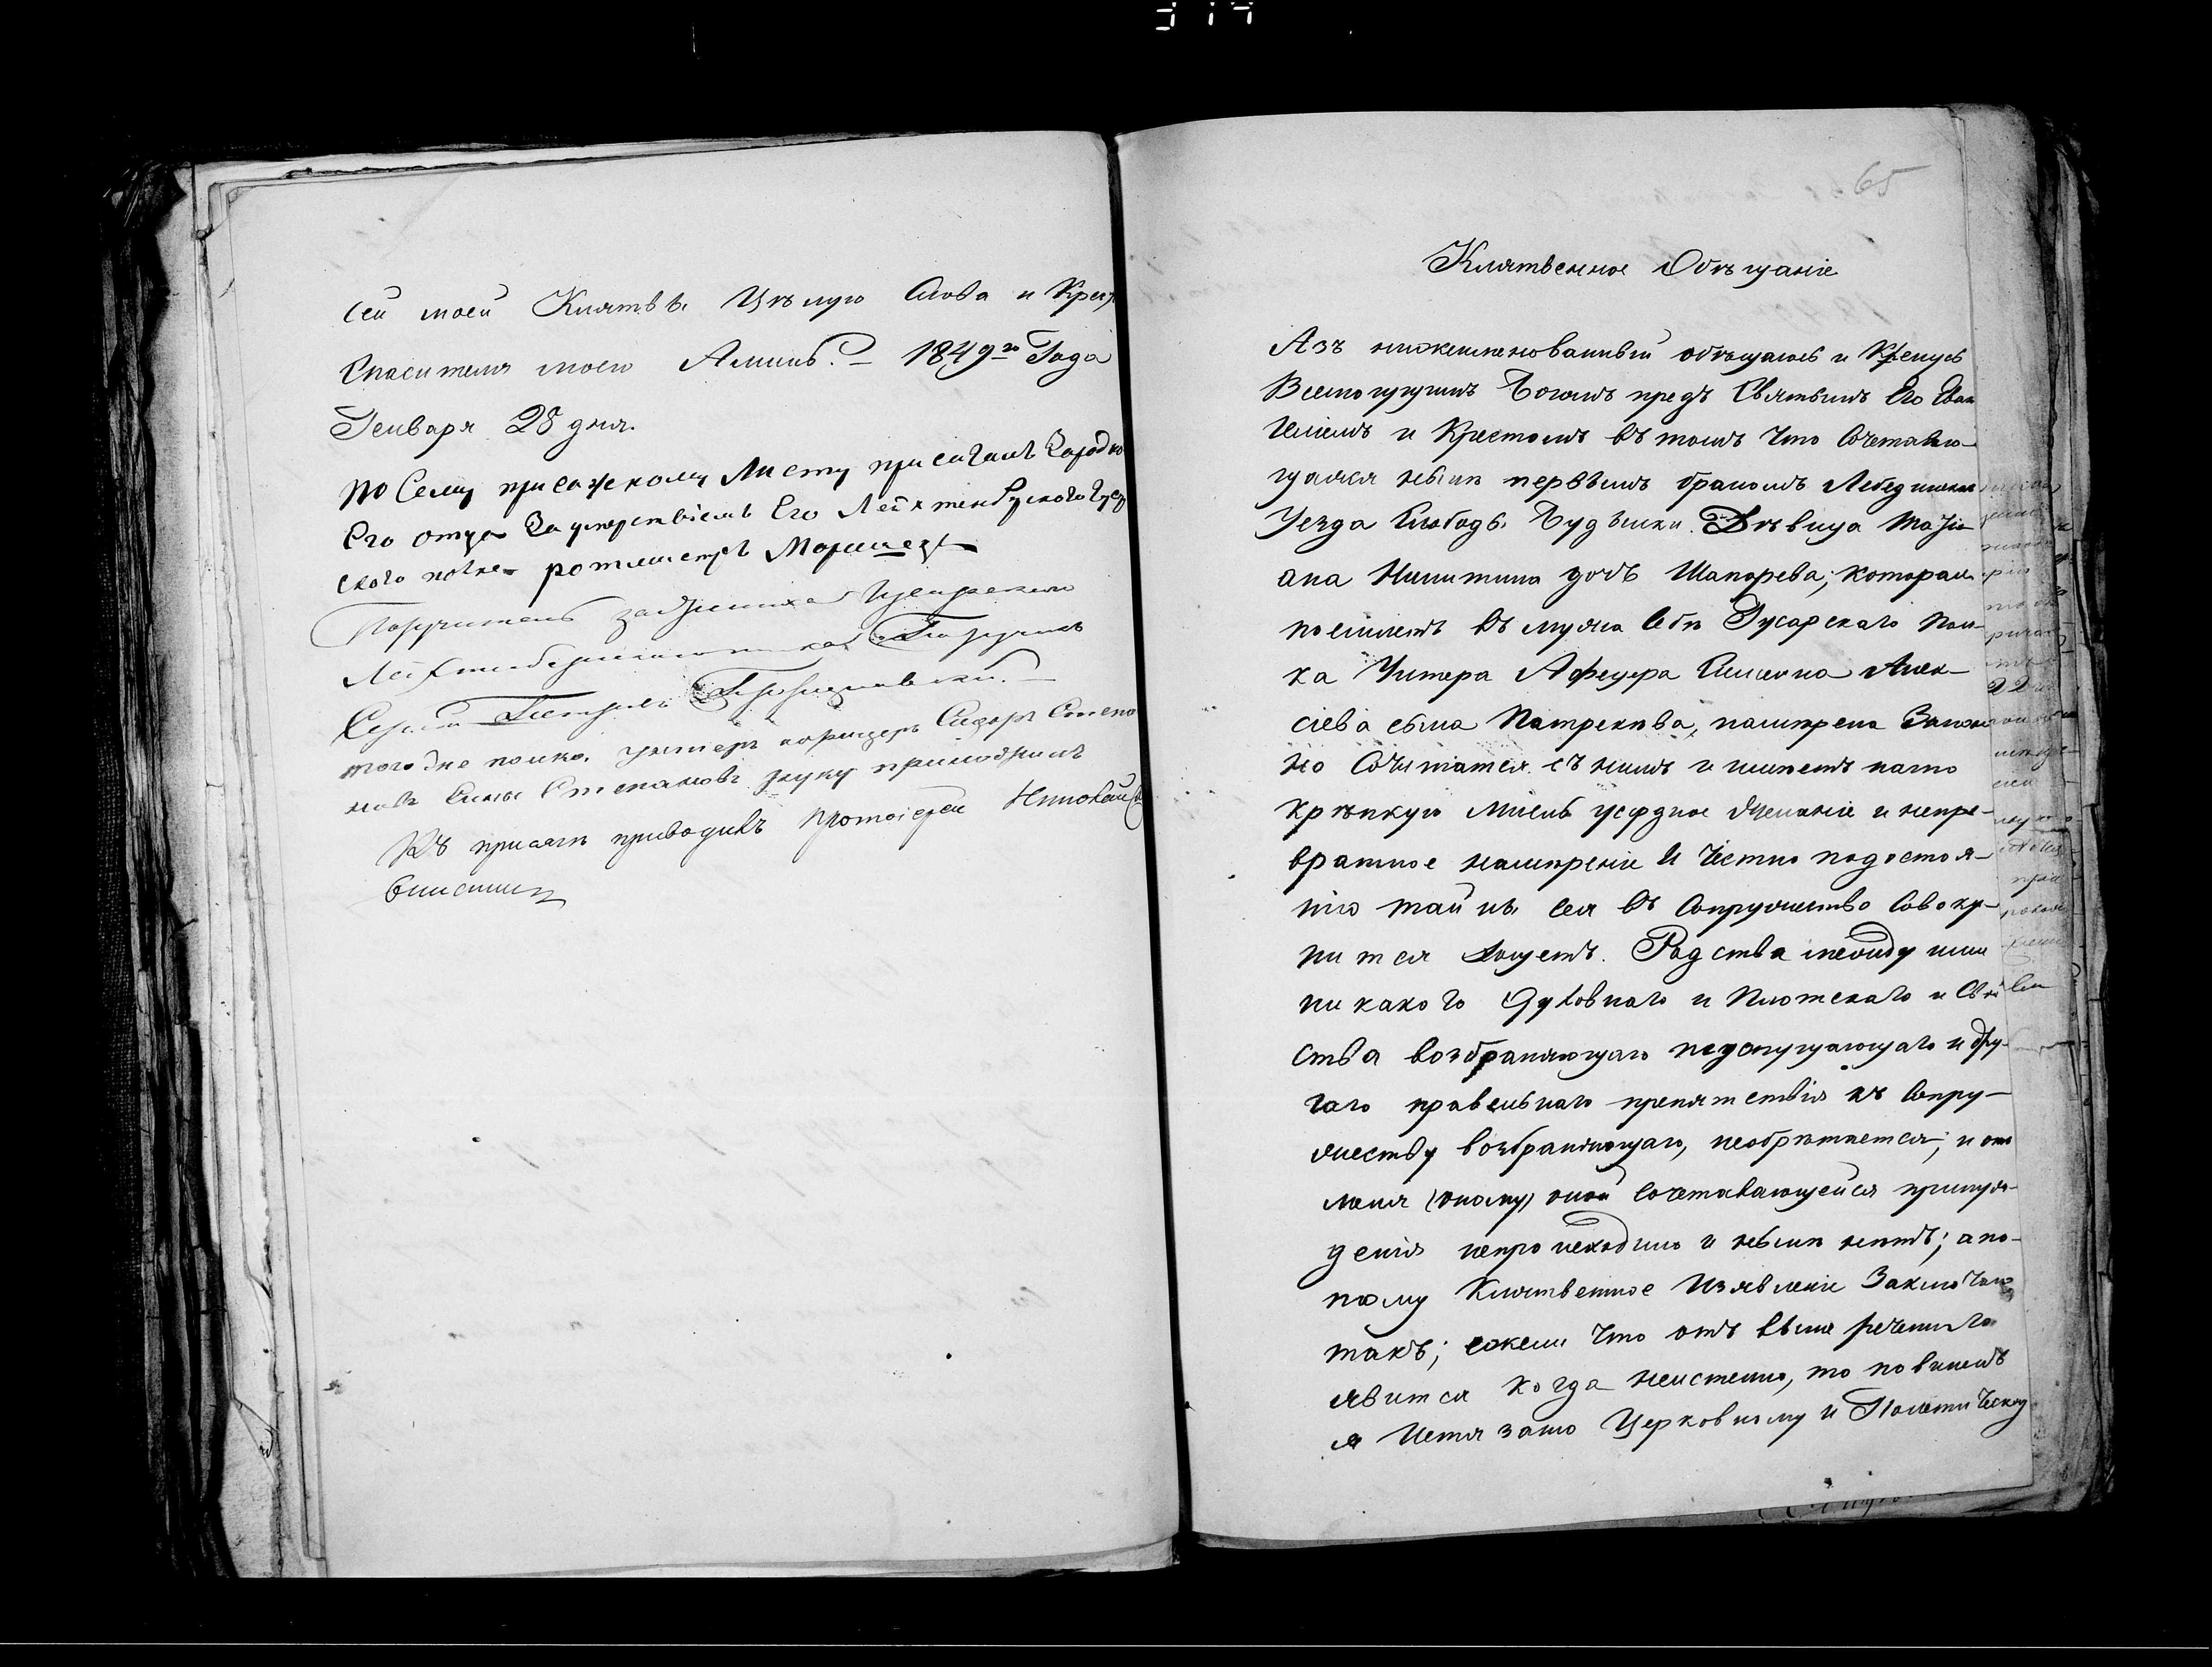 сей моей Клятвѣ Цѣлую Слова и Крест
Спасителя моего Аминь. 1849го Года
Генваря 28 дня.
По Сему присяжному Листу присягалъ
Его отца За умерствіемъ Его Лейхтенбускаго Гус
ского полка ротмистръ
Поручитель
Поручикъ
Сергей Петровъ
того же полка унтеръ афицеръ Сидоръ Степа
новъ Сынъ Степановъ руку приложилъ
Къ присягѣ приводилъ Протоіерей Николай
65
Клятвенное Обѣщаніе
Азъ нижеименованный обѣщаюсь и Кленусь
Всемогущимъ Богомъ предъ Святымъ Его Еван
геліемъ и Крестомъ въ томъ Что Сочетаваю-
щаяся нынѣ первымъ бракомъ Лебединскаго
Уезда Слободы Будылки Дѣвица Татія-
ана Никитина дочь Шапарева; которая
поемлетъ въ мужа Себѣ Гусарскаго Пол-
ка Унтера Афецера Симеона Алек-
сіева сына Патрекѣва, намѣрена Законо
но Сочитатся съ нимъ и имѣетъ на то
крѣпкую мысль усердное Желаніе и непре-
вратное намѣреніе И Честно по достоя-
нію тайны сея въ Супружество Совоку-
пится Хощетъ. Родства между ими
никакого Духовнаго и Плотскаго и Свой
ства возбраняющаго недопущающаго и дру-
гаго правельнаго препятствія къ Супру-
жеству возбраняющаго, необрѣтается; и от
меня (оному) оной Сочетавающейся принуж-
денія непроисходило и нынѣ нѣтъ; а по-
тому Клятвенное Изявленіе Заключаю
такъ; ежели Что отъ выше реченнаго
явится когда неистенно, то повиненъ
я Истязанію Церковному и Политическому